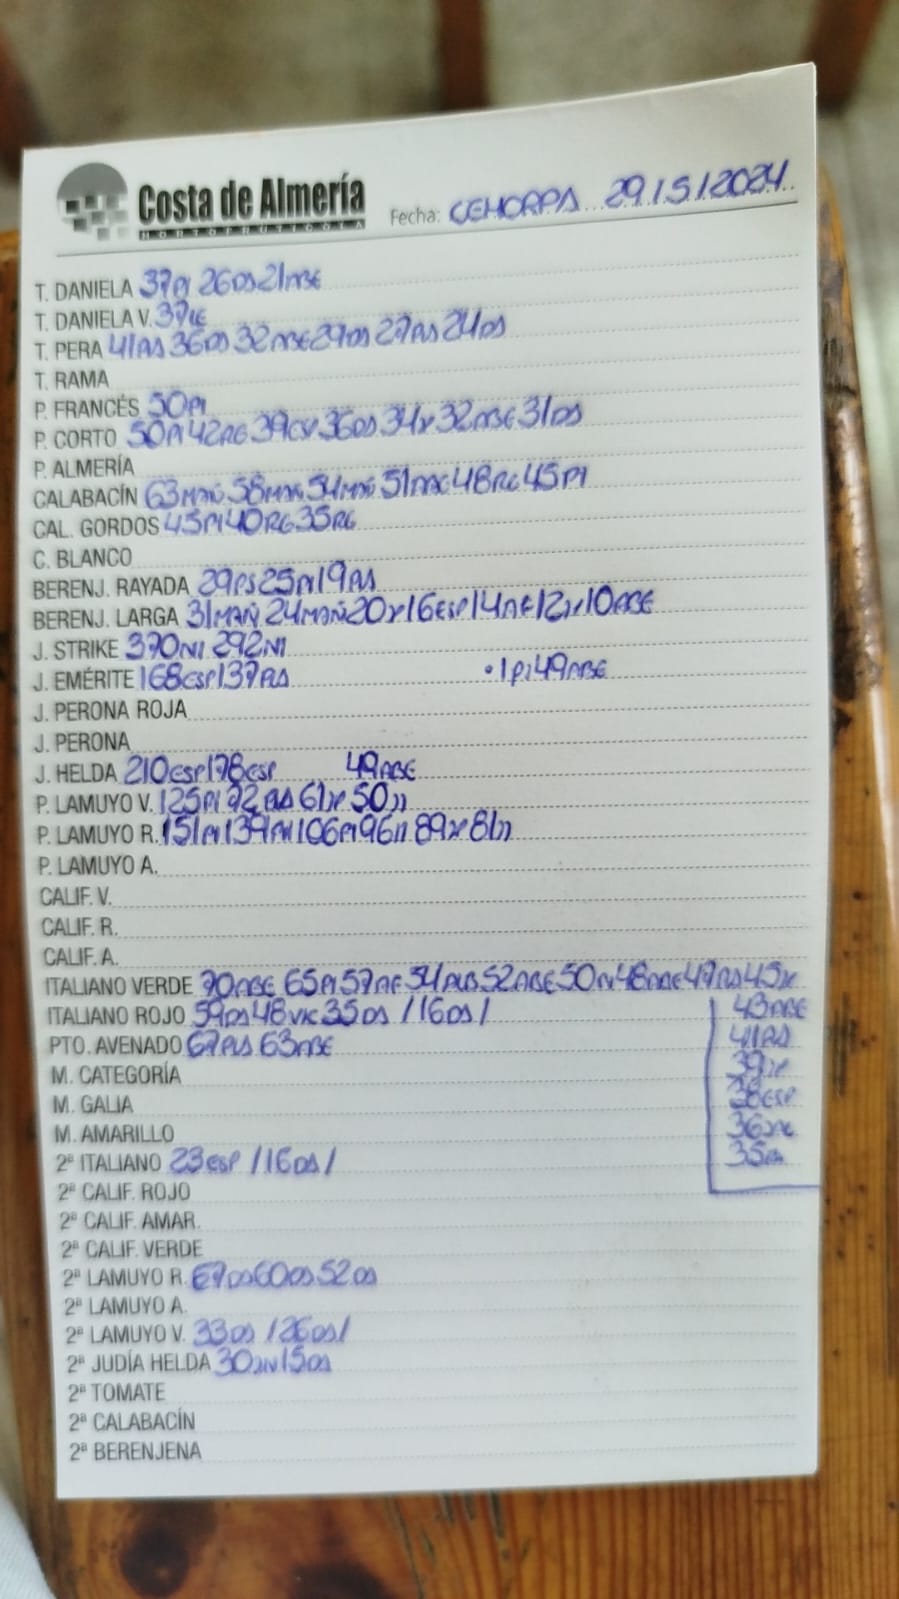 Costa de Almería
HORTOFRUTÍCOLA
Fecha: CEHORPA 29/5/2024
T. DANIELA 37PI 26DS 21ABE
T. DANIELA V. 37
T. PERA 41PAS 36DS 32ABE 29DS 27PAS 24DS
T. RAMA
P. FRANCÉS 50PI
P. CORTO 50PI 42 39 36DS 34 32ABE 31DS
P. ALMERÍA
CALABACÍN 63MAÑ 58MAÑ 54MAÑ 51 48RG 45PI
CAL. GORDOS 45PI 40RG 35RG
C. BLANCO
BERENJ. RAYADA 29 25PI 19PAS
BERENJ. LARGA 31MAÑ 24MAÑ 20 16ESP 14 12 10ABE
J. STRIKE 370NI 292NI
J. EMÉRITE 168ESP 137PAS 49ABE
J. PERONA ROJA
J. PERONA
J. HELDA 210ESP 178ESP 49ABE
P. LAMUYO V. 125PI 61 50
P. LAMUYO R. 151PI 139 106PI 96 89 81
P. LAMUYO A.
CALIF. V.
CALIF. R.
CALIF. A.
ITALIANO VERDE 70ABE 65PI 57 54 52ABE 50 48ABE 47PAS 45
ITALIANO ROJO 59PAS 48VIC 35DS /16DS/
43ABE
PTO. AVENADO 67 63ABE
41PAS
M. CATEGORÍA
39
M. GALIA
38ESP
M. AMARILLO
36
2ª ITALIANO 23ESP /16DS/
35
2ª CALIF. ROJO
2ª CALIF. AMAR.
2ª CALIF. VERDE
2ª LAMUYO R. 67DS 60DS 52DS
2ª LAMUYO A.
2ª LAMUYO V. 33DS /26DS/
2ª JUDÍA HELDA 30 15DS
2ª TOMATE
2ª CALABACÍN
2ª BERENJENA